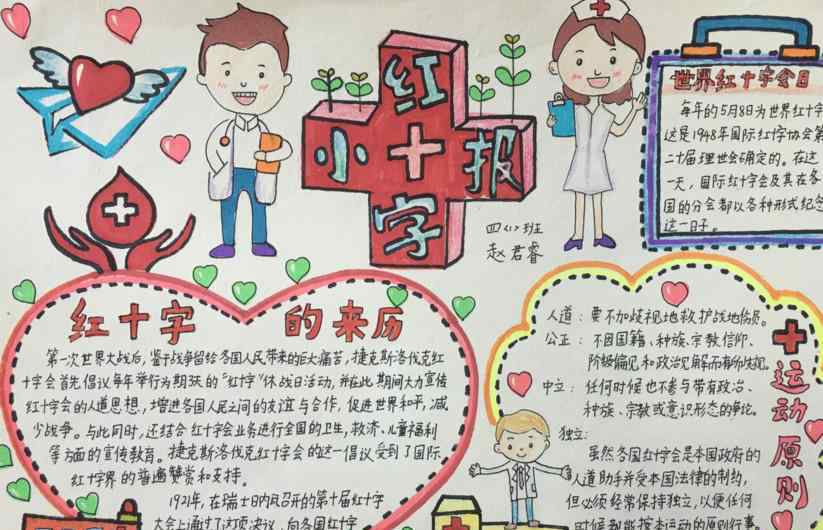 红十字
小 报
四(1)班
赵君睿
世界红十字会日
每年的5月8日为世界红十字
这是1948年国际红十字协会第
二十届理世会确定的。在这
一天，国际红十字会及其在各
国的分会都以各种形式纪念
这一日子。
红十字的来历
第一次世界大战后，鉴于战争留给各国人民带来的巨大痛苦，捷克斯洛伐克红
十字会首先倡议每年举行为期3天的“红十字”休战日活动，并在此期间大力宣传
红十字会的人道思想，增进各国人民之间的友谊与合作，促进世界和平，减
少战争。与此同时，还结合红十字会业务进行全国的卫生，救济、儿童福利
等方面的宣传教育。捷克斯洛伐克红十字会的这一倡议受到了国际
红十字界的普遍赞赏和支持。
1921年，在瑞士日内瓦召开的第十届红十字
大会上通过了这项决议，向各国红十字
运动原则
人道：要不加歧视地救护战地伤员。
公正：不因国籍、种族、宗教信仰、
阶级偏见和政治见解而有所歧视。
中立：任何时候也不参与带有政治、
种族、宗教或意识形态的争论。
独立：
虽然各国红十字会是本国政府的
人道助手并受本国法律的制约，
但必须经常保持独立，以便任何
时候都能按本运动的原则行事